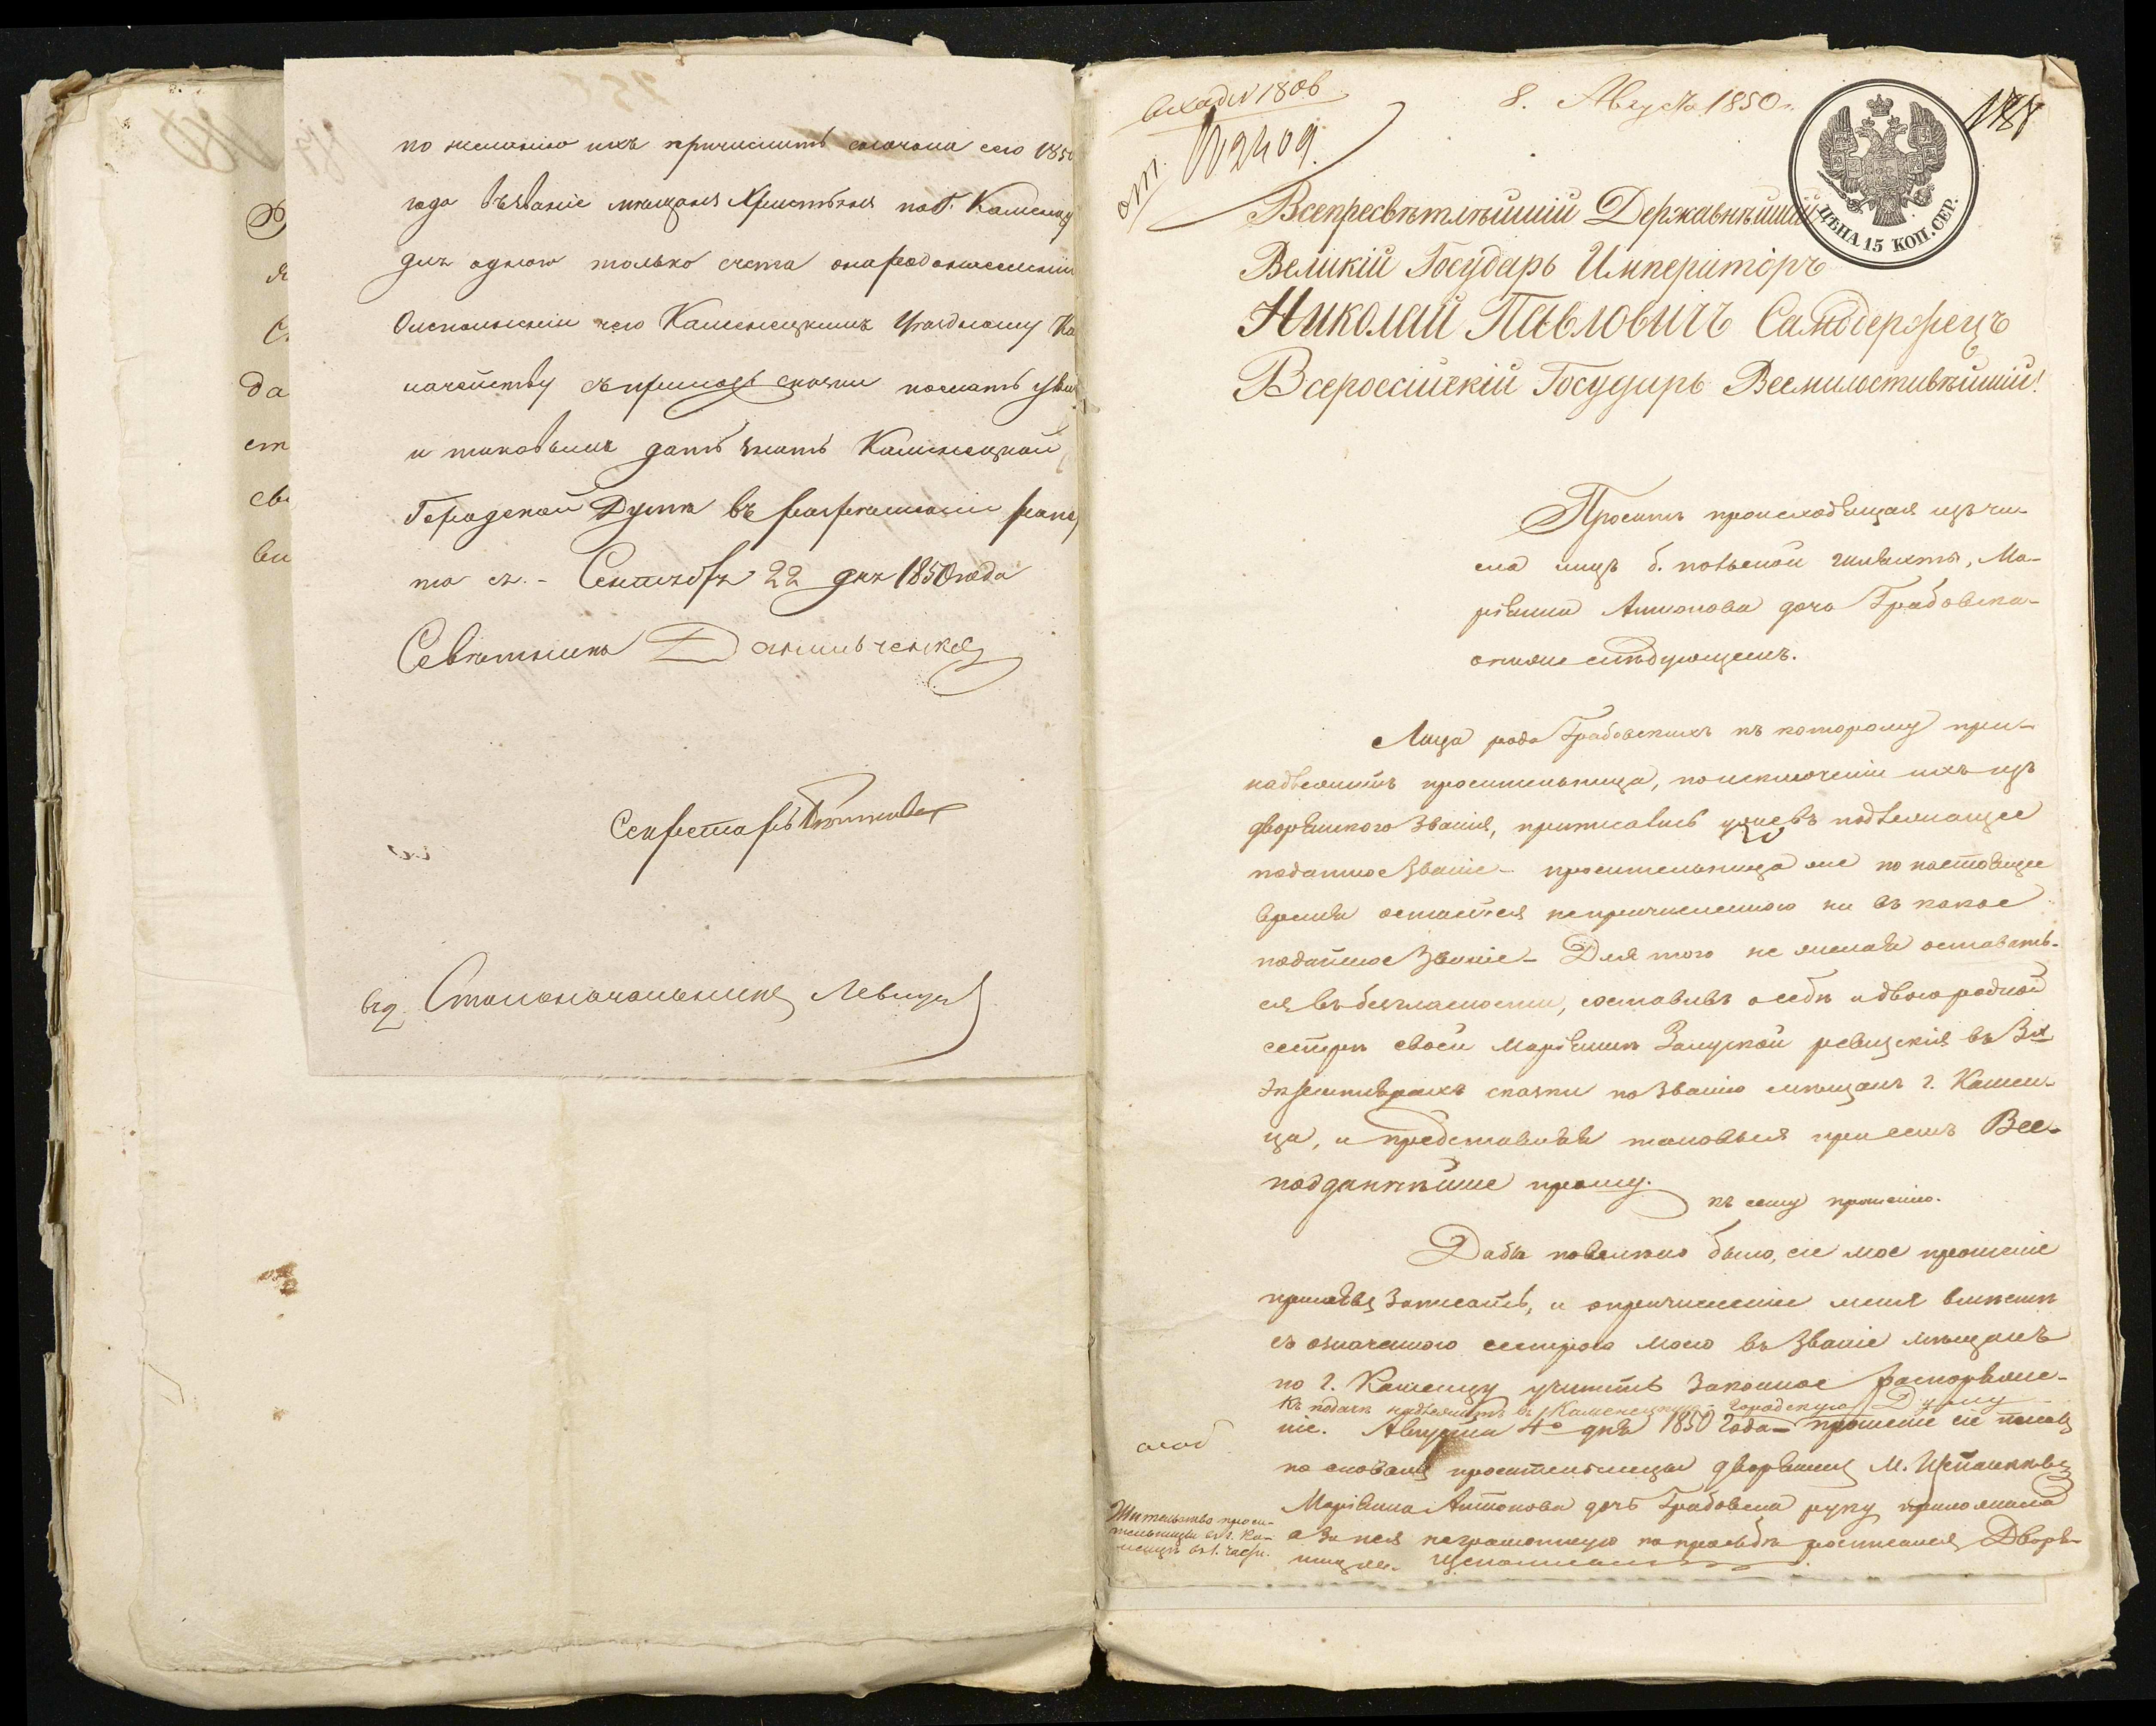 по желанію ихъ причислить сначала сего 1850
года въ званіе мѣщанъ Христіанъ по Г. Каменцу
для одного только счета
Объ исполненіи чего Каменецкому Уѣздному Ка
начейству съ прилож. сказки послать указъ
и таковымъ дать знать Каменецкой
Городской Думѣ въ разрѣшеніе рапор
та ея. - Сентября 22 дня 1850 года
Совѣтникъ Данильченко
Секретарь
Столоначальникъ Левицкій
Да
ст
св
ви
Входящ 1806
от. N 2409.
8. Августа 1850 г.
ЦѢНА 15 КОП. СЕР.
188
Всепресвѣтлѣйшій Державнѣйшій
Великій Государь Императоръ
Николай Павловичъ Самодержецъ
Всероссійскій Государь Всемилостивѣйшій!
Проситъ происходящая изъ чи-
сла лицъ б. польской шляхты, Ма-
ріанна Антонова дочь Грабовска-
о нижеслѣдующемъ.
Лица рода Грабовскихъ къ которому при-
надлежитъ просительница, по исключеніи ихъ изъ
дворянскаго званія, приписались уже въ подлежащее
податное званіе - просительница же по настоящее
время остается непричисленною ни въ какое
податное званіе - Для того не желая оставать-
ся въ безгласности, составивъ о себѣ и двоюродной
сестрѣ своей Маріаннѣ Залуской ревизскія въ 3х
экземплярахъ сказки по званію мѣщанъ г. Камен-
ца, и представляя таковыя при семъ Все-
подданнѣйше прошу.
къ сему прошенію.
Дабы повелѣно было, сіе мое прошеніе
принявъ записать, и о причисленіи меня вмѣстѣ
съ означенною сестрою моею въ званіе мѣщанъ
по г. Каменцу учинить законное распоряже-
Къ подачѣ надлежитъ въ Каменецкую городскую Думу
ніе. Августа 4го дня 1850 года - прошеніе сіе писалъ
со словъ просительницы дворянинъ М.
Маріанна Антонова дочь Грабовска руку приложила
а за нея неграмотную по просьбѣ росписался Дворя-
нинъ
Жительство проси-
тельницы въ г. Ка-
менцѣ въ 1. части.